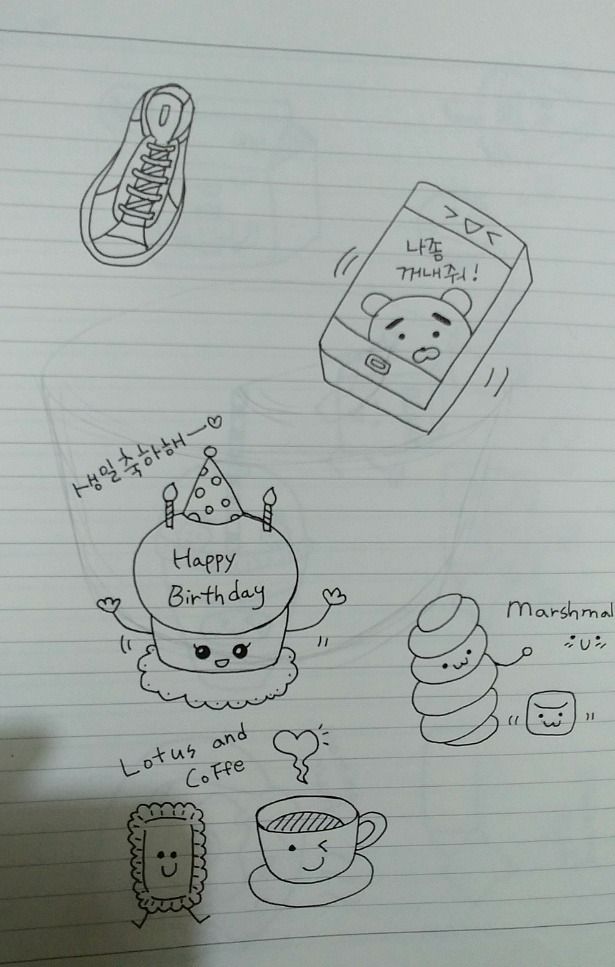 나좀
꺼내줘!
생일축하해~♡
Happy
Birthday
Marshmal
Lotus and
Coffe